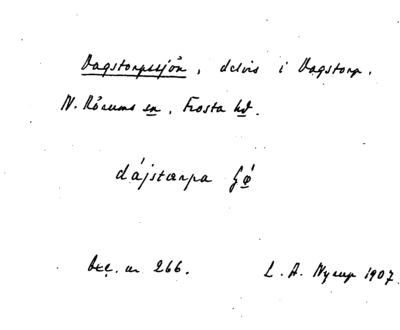 Dagstorpssjön, delvis i Dagstorp.
N. Rörums sn, Frosta hd.
dájstɑrpa ʃǿ
Bec. nr 266. L. A. Nyrup 1907.